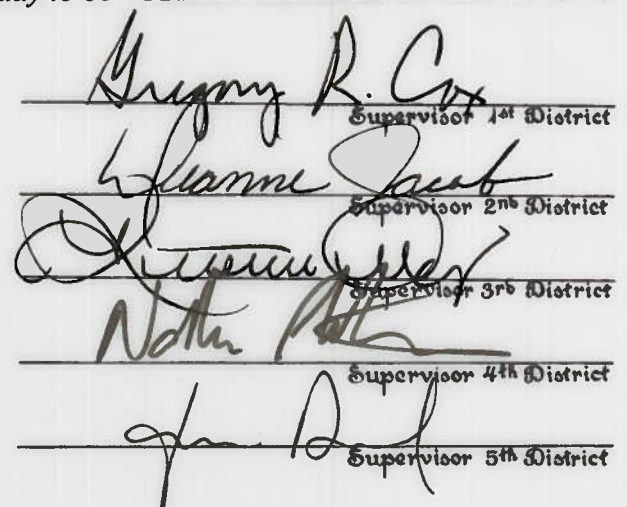 Gregory R. Cox
Supervisor 1st District
Dianne Jacob
Supervisor 2nd District
Supervisor 3rd District
Supervisor 4th District
Supervisor 5th District